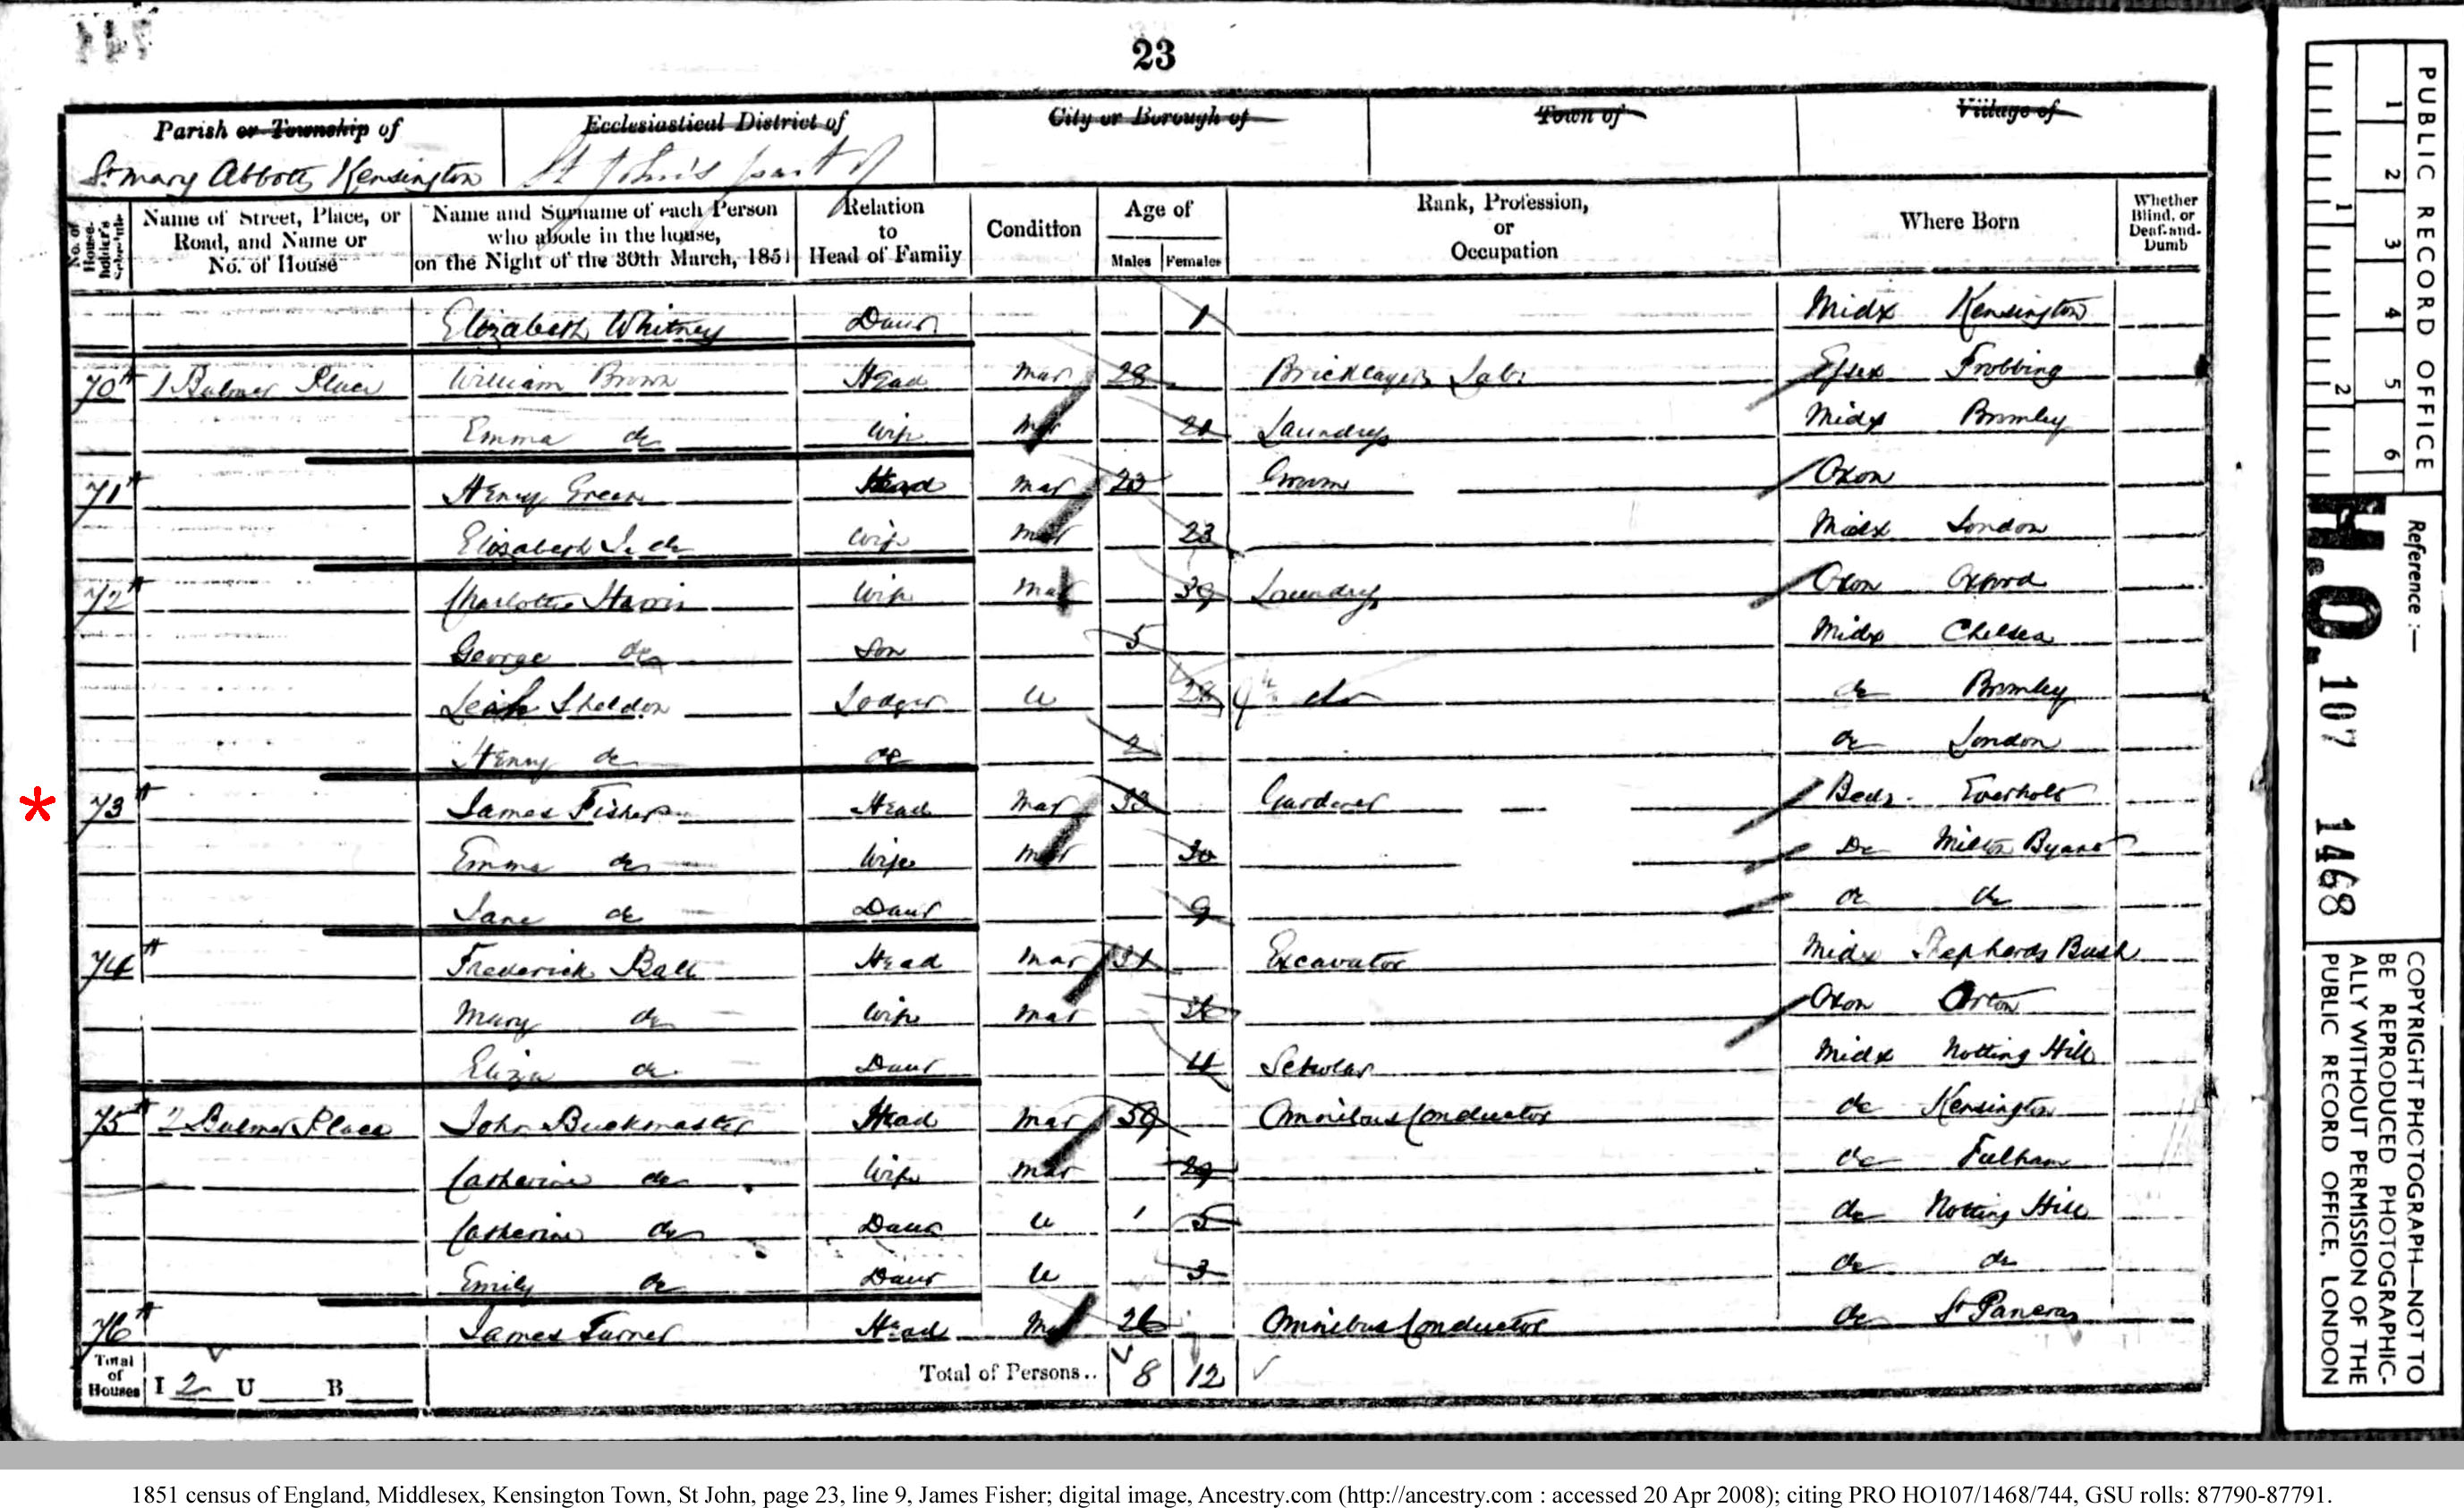 23
Parish or Township of
Ecclesiastical District of
City or Borough of
Town of
Village of
St Mary Abbotts Kensington
St John's part of
No. of House-holder's Schedule
Name of Street, Place, or Road, and Name or No. of House
Name and Surname of each Person who abode in the house, on the Night of the 30th March, 1851
Relation to Head of Family
Condition
Age of
Males Females
Rank, Profession, or Occupation
Where Born
Whether Blind, or Deaf-and-Dumb
Elizabeth Whitney Daur 1 Midx Kensington
70 1 Bulmer Place William Brown Head Mar 28 Bricklayers Labr Essex Frobbing
Emma do Wife Mar Laundress Midx Bromley
71 Henry Green Head Mar 23 Groom Oxon
Elizabeth J. do Wife Mar 23 Midx London
72 Charlotte Harris Wife Mar 39 Laundress Oxon Oxford
George do Son 5 Midx Chelsea
Leah Sheldon Lodger U 28 do do Bromley
Henry do do 2 do London
* 73 James Fisher Head Mar 33 Gardener Beds. Eversholt
Emma do Wife Mar 30 Do Milton Byant
Jane do Daur 9 do do
74 Frederick Ball Head Mar 31 Excavator Midx Shepherds Bush
Mary do Wife Mar Oxon Orton
Eliza do Daur 4 Scholar Midx Notting Hill
75 2 Bulmer Place John Buckmaster Head Mar 39 Omnibus Conductor do Kensington
Catherine do Wife Mar 29 do Fulham
Catherine do Daur U 5 do Notting Hill
Emily do Daur U 3 do do
76 James Turner Head Mar 26 Omnibus Conductor do St Pancras
Total of Houses I 2 U B Total of Persons.. 8 12
PUBLIC RECORD OFFICE
1 2 3 4 5 6
1 2
Reference :—
H.O. 107 1468
COPYRIGHT PHOTOGRAPH—NOT TO
BE REPRODUCED PHOTOGRAPHIC-
ALLY WITHOUT PERMISSION OF THE
PUBLIC RECORD OFFICE, LONDON
1851 census of England, Middlesex, Kensington Town, St John, page 23, line 9, James Fisher; digital image, Ancestry.com (http://ancestry.com : accessed 20 Apr 2008); citing PRO HO107/1468/744, GSU rolls: 87790-87791.